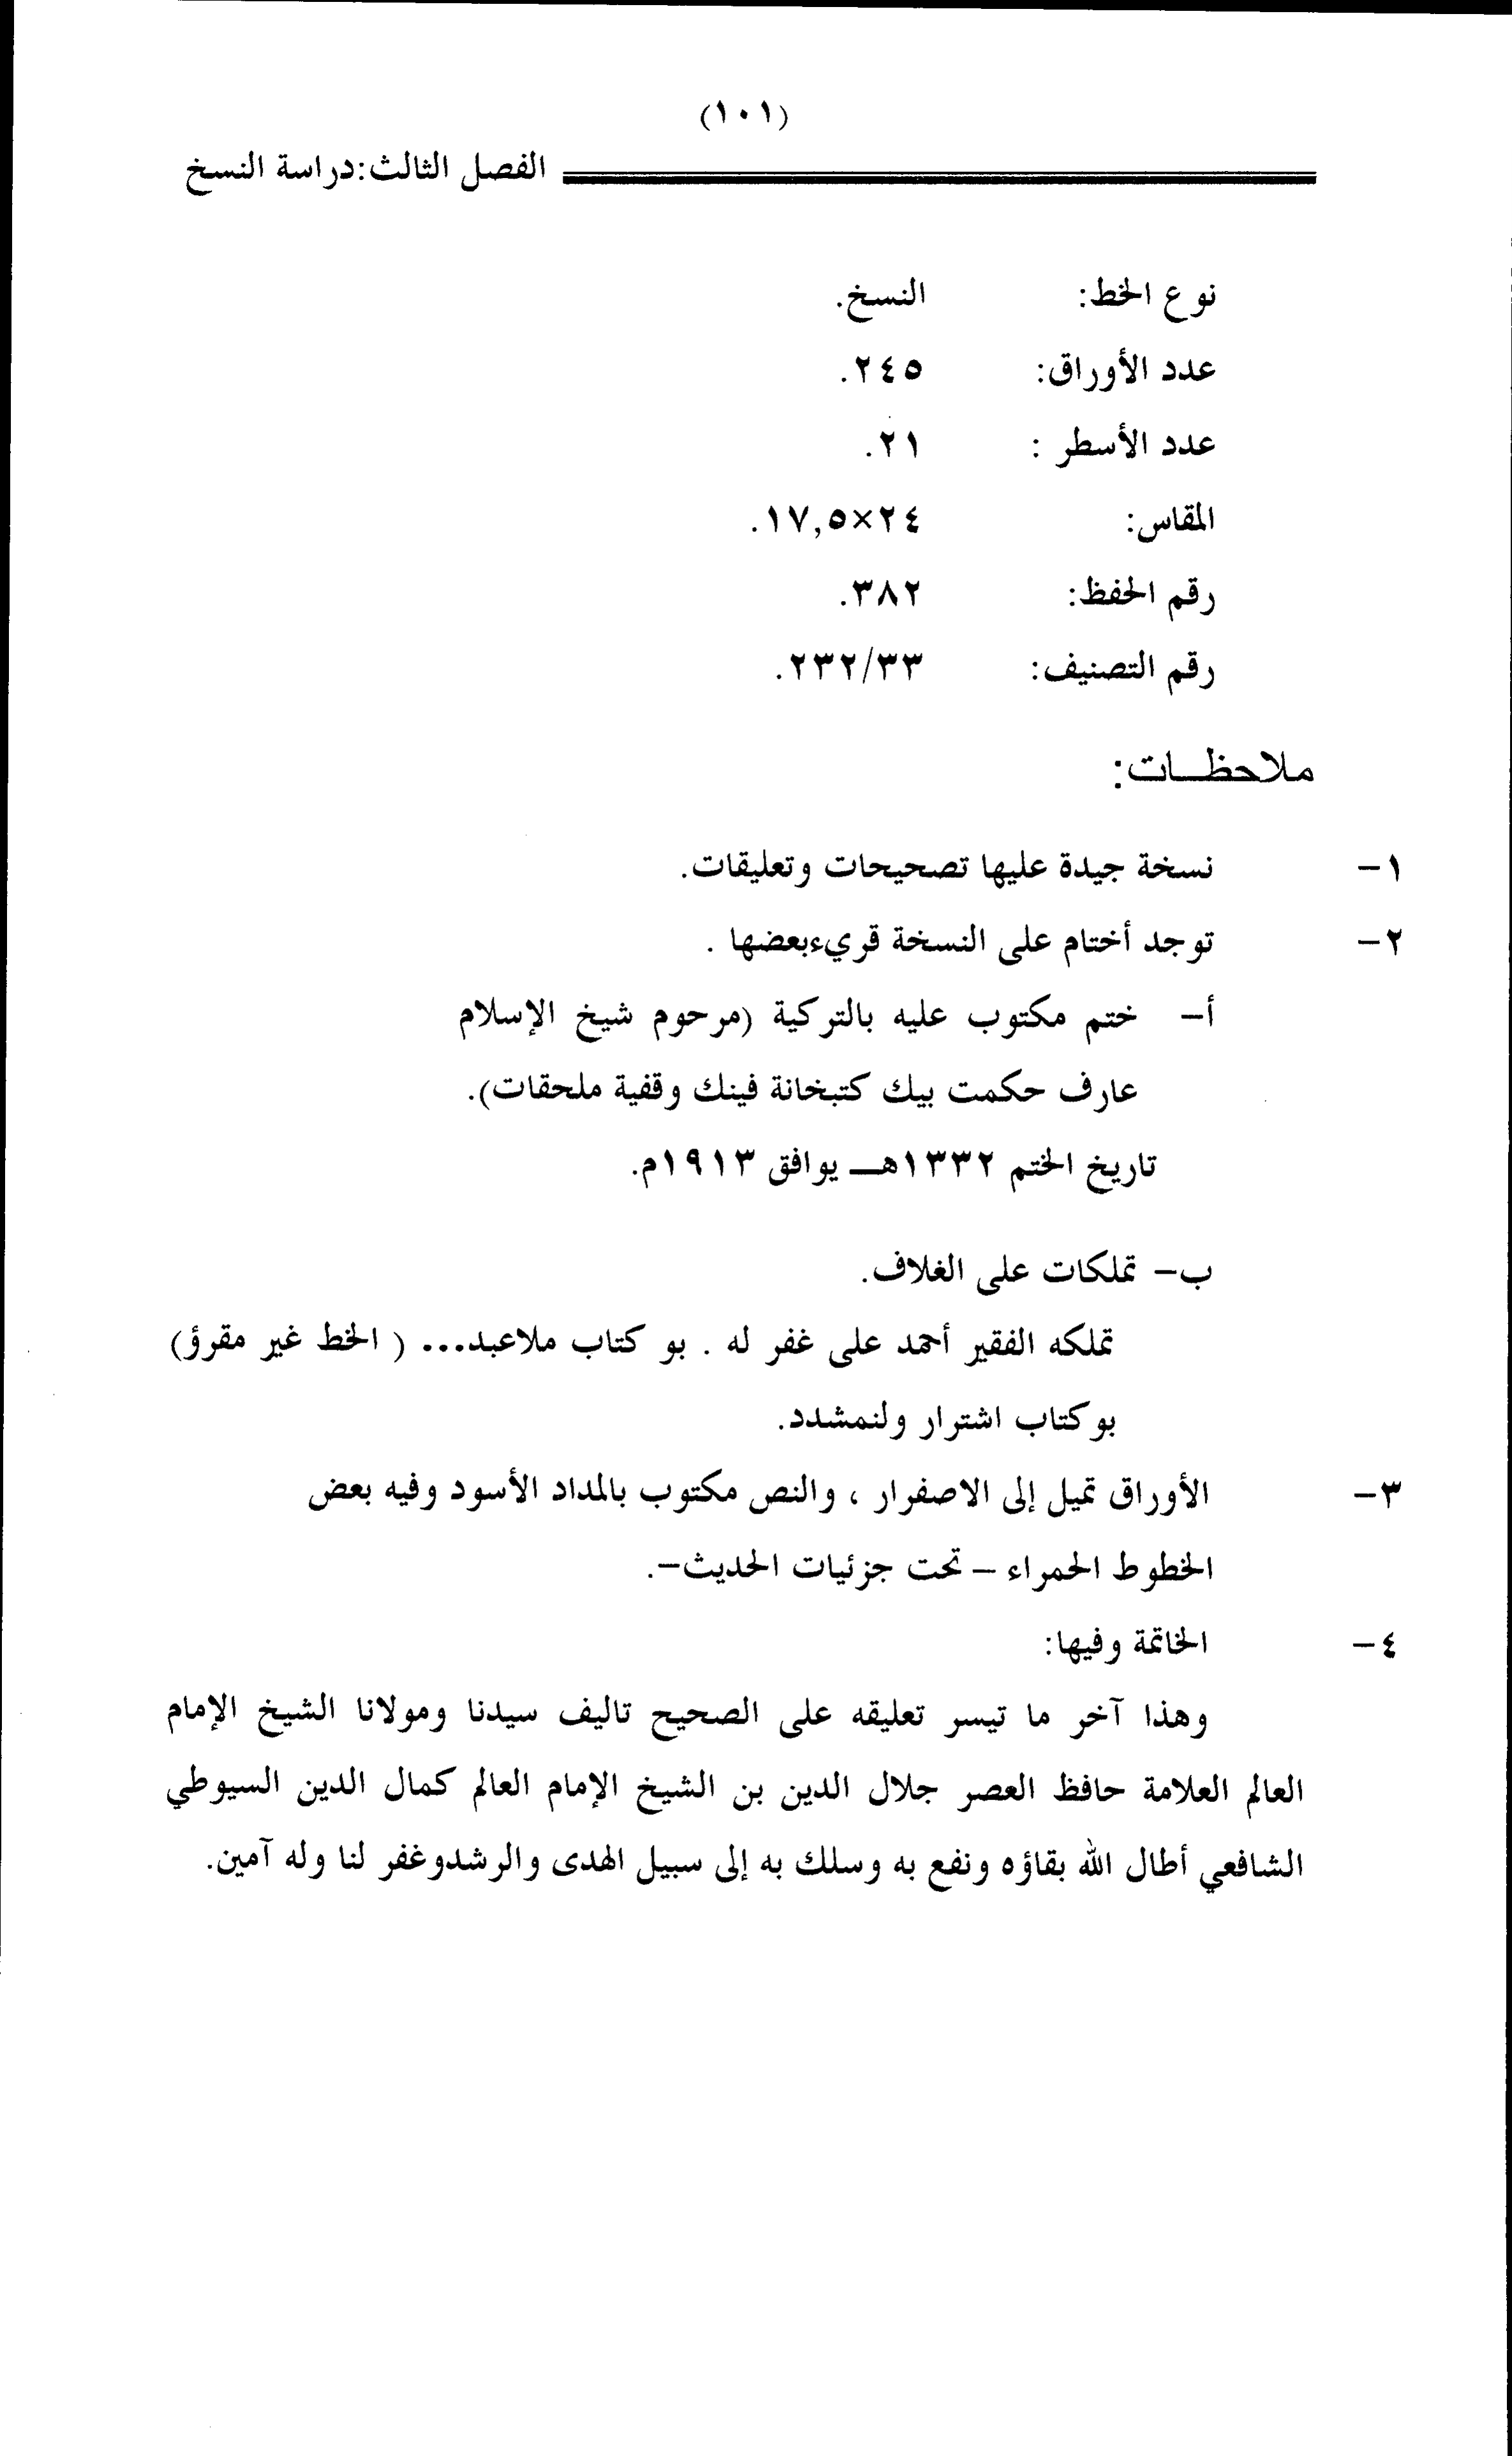 (١٠١)
الفصل الثالث:دراسة النسخ
نوع الخط: النسخ.
عدد الأوراق: ٢٤٥.
عدد الأسطر : ٢١.
المقاس: ٢٤×١٧,٥.
رقم الحفظ: ٣٨٢.
رقم التصنيف: ٢٣٢/٣٣.
ملاحظـات:
١- نسخة جيدة عليها تصحيحات وتعليقات.
٢- توجد أختام على النسخة قريءبعضها .
أ- ختم مكتوب عليه بالتركية (مرحوم شيخ الإسلام
عارف حكمت بيك كتبخانة فينك وقفية ملحقات).
تاريخ الختم ١٣٣٢هـ يوافق ١٩١٣م.
ب- تملكات على الغلاف.
تملكه الفقير أحمد على غفر له . بو كتاب ملاعبد... ( الخط غير مقرؤ)
بوكتاب اشترار ولنمشدد.
٣- الأوراق تميل إلى الاصفرار ، والنص مكتوب بالمداد الأسود وفيه بعض
الخطوط الحمراء - تحت جزئيات الحديث-.
٤- الخاتمة وفيها:
وهذا آخر ما تيسر تعليقه على الصحيح تاليف سيدنا ومولانا الشيخ الإمام
العالم العلامة حافظ العصر جلال الدين بن الشيخ الإمام العالم كمال الدين السيوطي
الشافعي أطال الله بقاؤه ونفع به وسلك به إلى سبيل الهدى والرشدوغفر لنا وله آمين.